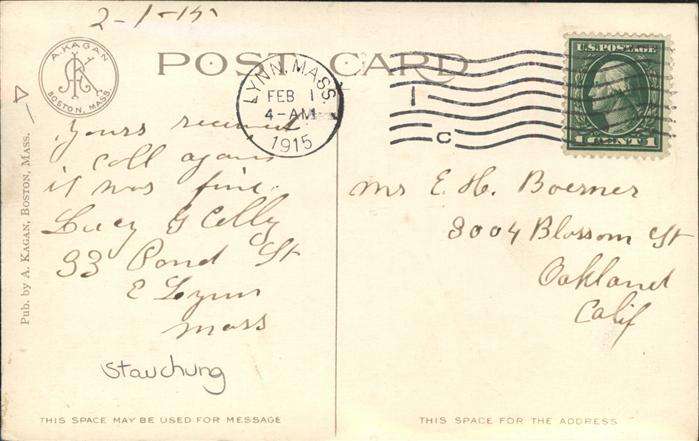 2-1-15
A. KAGAN
BOSTON, MASS.
POST CARD
LYNN, MASS.
FEB 1
4-AM
1915
1
C
U.S. POSTAGE
1 CENT 1
Yours received
call again
it was fine.
Lucy G Celly
33 Pond St
E Lynn
Mass
Stauchung
Mr E. H. Boerner
3004 Blossom St
Oakland
Calif
Pub. by A. KAGAN, BOSTON, MASS.
THIS SPACE MAY BE USED FOR MESSAGE
THIS SPACE FOR THE ADDRESS